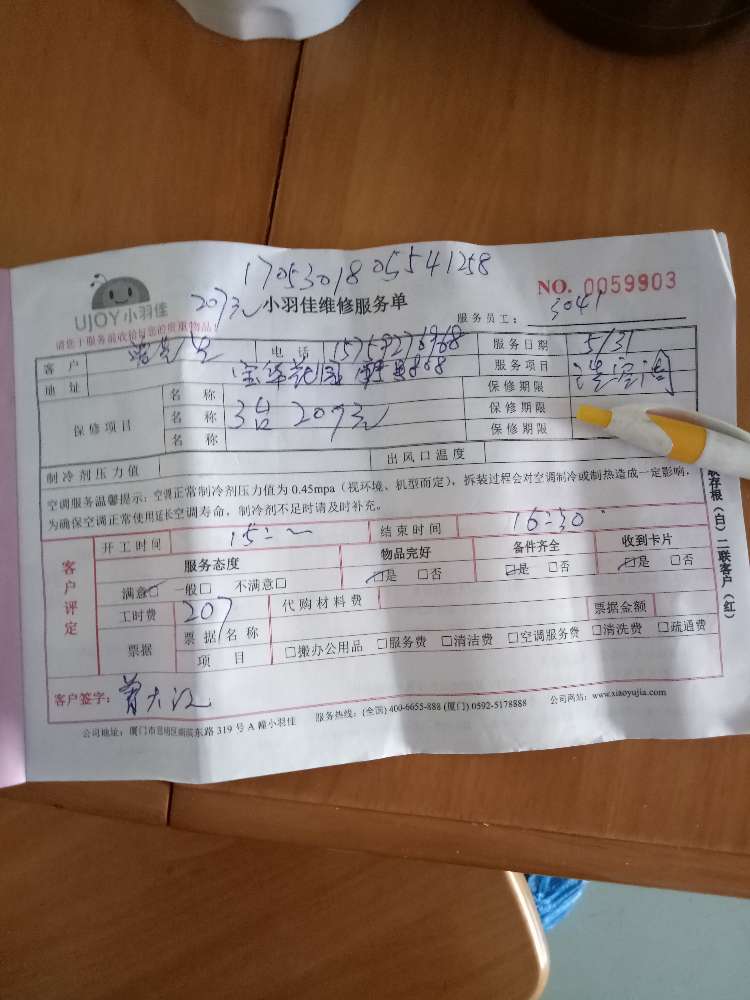 1705301805541258
UJOY小羽佳
207元 小羽佳维修服务单
NO. 0059903
请您于服务前收拾与您的贵重物品!
服务员工: 3041
客户 电话 服务日期 5/31
地址 服务项目
保修项目 名称 保修期限
名称 3台 207元 保修期限
名称 保修期限
制冷剂压力值 出风口温度
空调服务温馨提示: 空调正常制冷剂压力值为 0.45mpa (视环境、机型而定), 拆装过程会对空调制冷或制热造成一定影响.
为确保空调正常使用延长空调寿命, 制冷剂不足时请及时补充。
客户评定
开工时间 结束时间 16:30
服务态度 物品完好 备件齐全 收到卡片
满意□ 一般□ 不满意□ □是 □否 □是 □否 □是 □否
工时费 207 代购材料费
票据 票据名称 票据金额
项目 □搬办公用品 □服务费 □清洁费 □空调服务费 □清洗费 □疏通费
客户签字:
公司地址: 厦门市思明区湖滨东路 319 号 A 幢小羽佳 服务热线: (全国) 400-6655-888 (厦门) 0592-5178888 公司网站: www.xiaoyujia.com
存根 (白) 二联客户 (红)